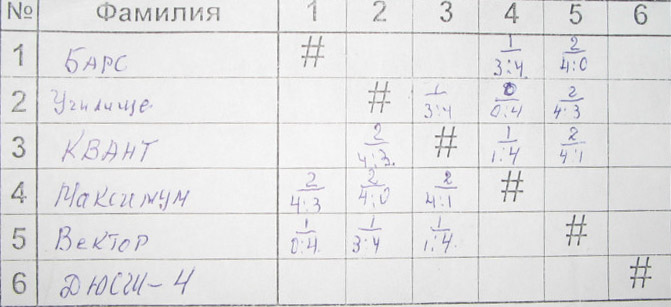 № Фамилия 1 2 3 4 5 6
1 БАРС # 1 3:4. 2 4:0
2 Училище # 1 3:4 0 0:4 2 4:3
3 КВАНТ 2 4:3. # 1 1:4 2 4:1
4 Максимум 2 4:3 2 4:0 2 4:1 #
5 Вектор 1 0:4. 1 3:4 1 1:4. #
6 ДЮСШ-4 #